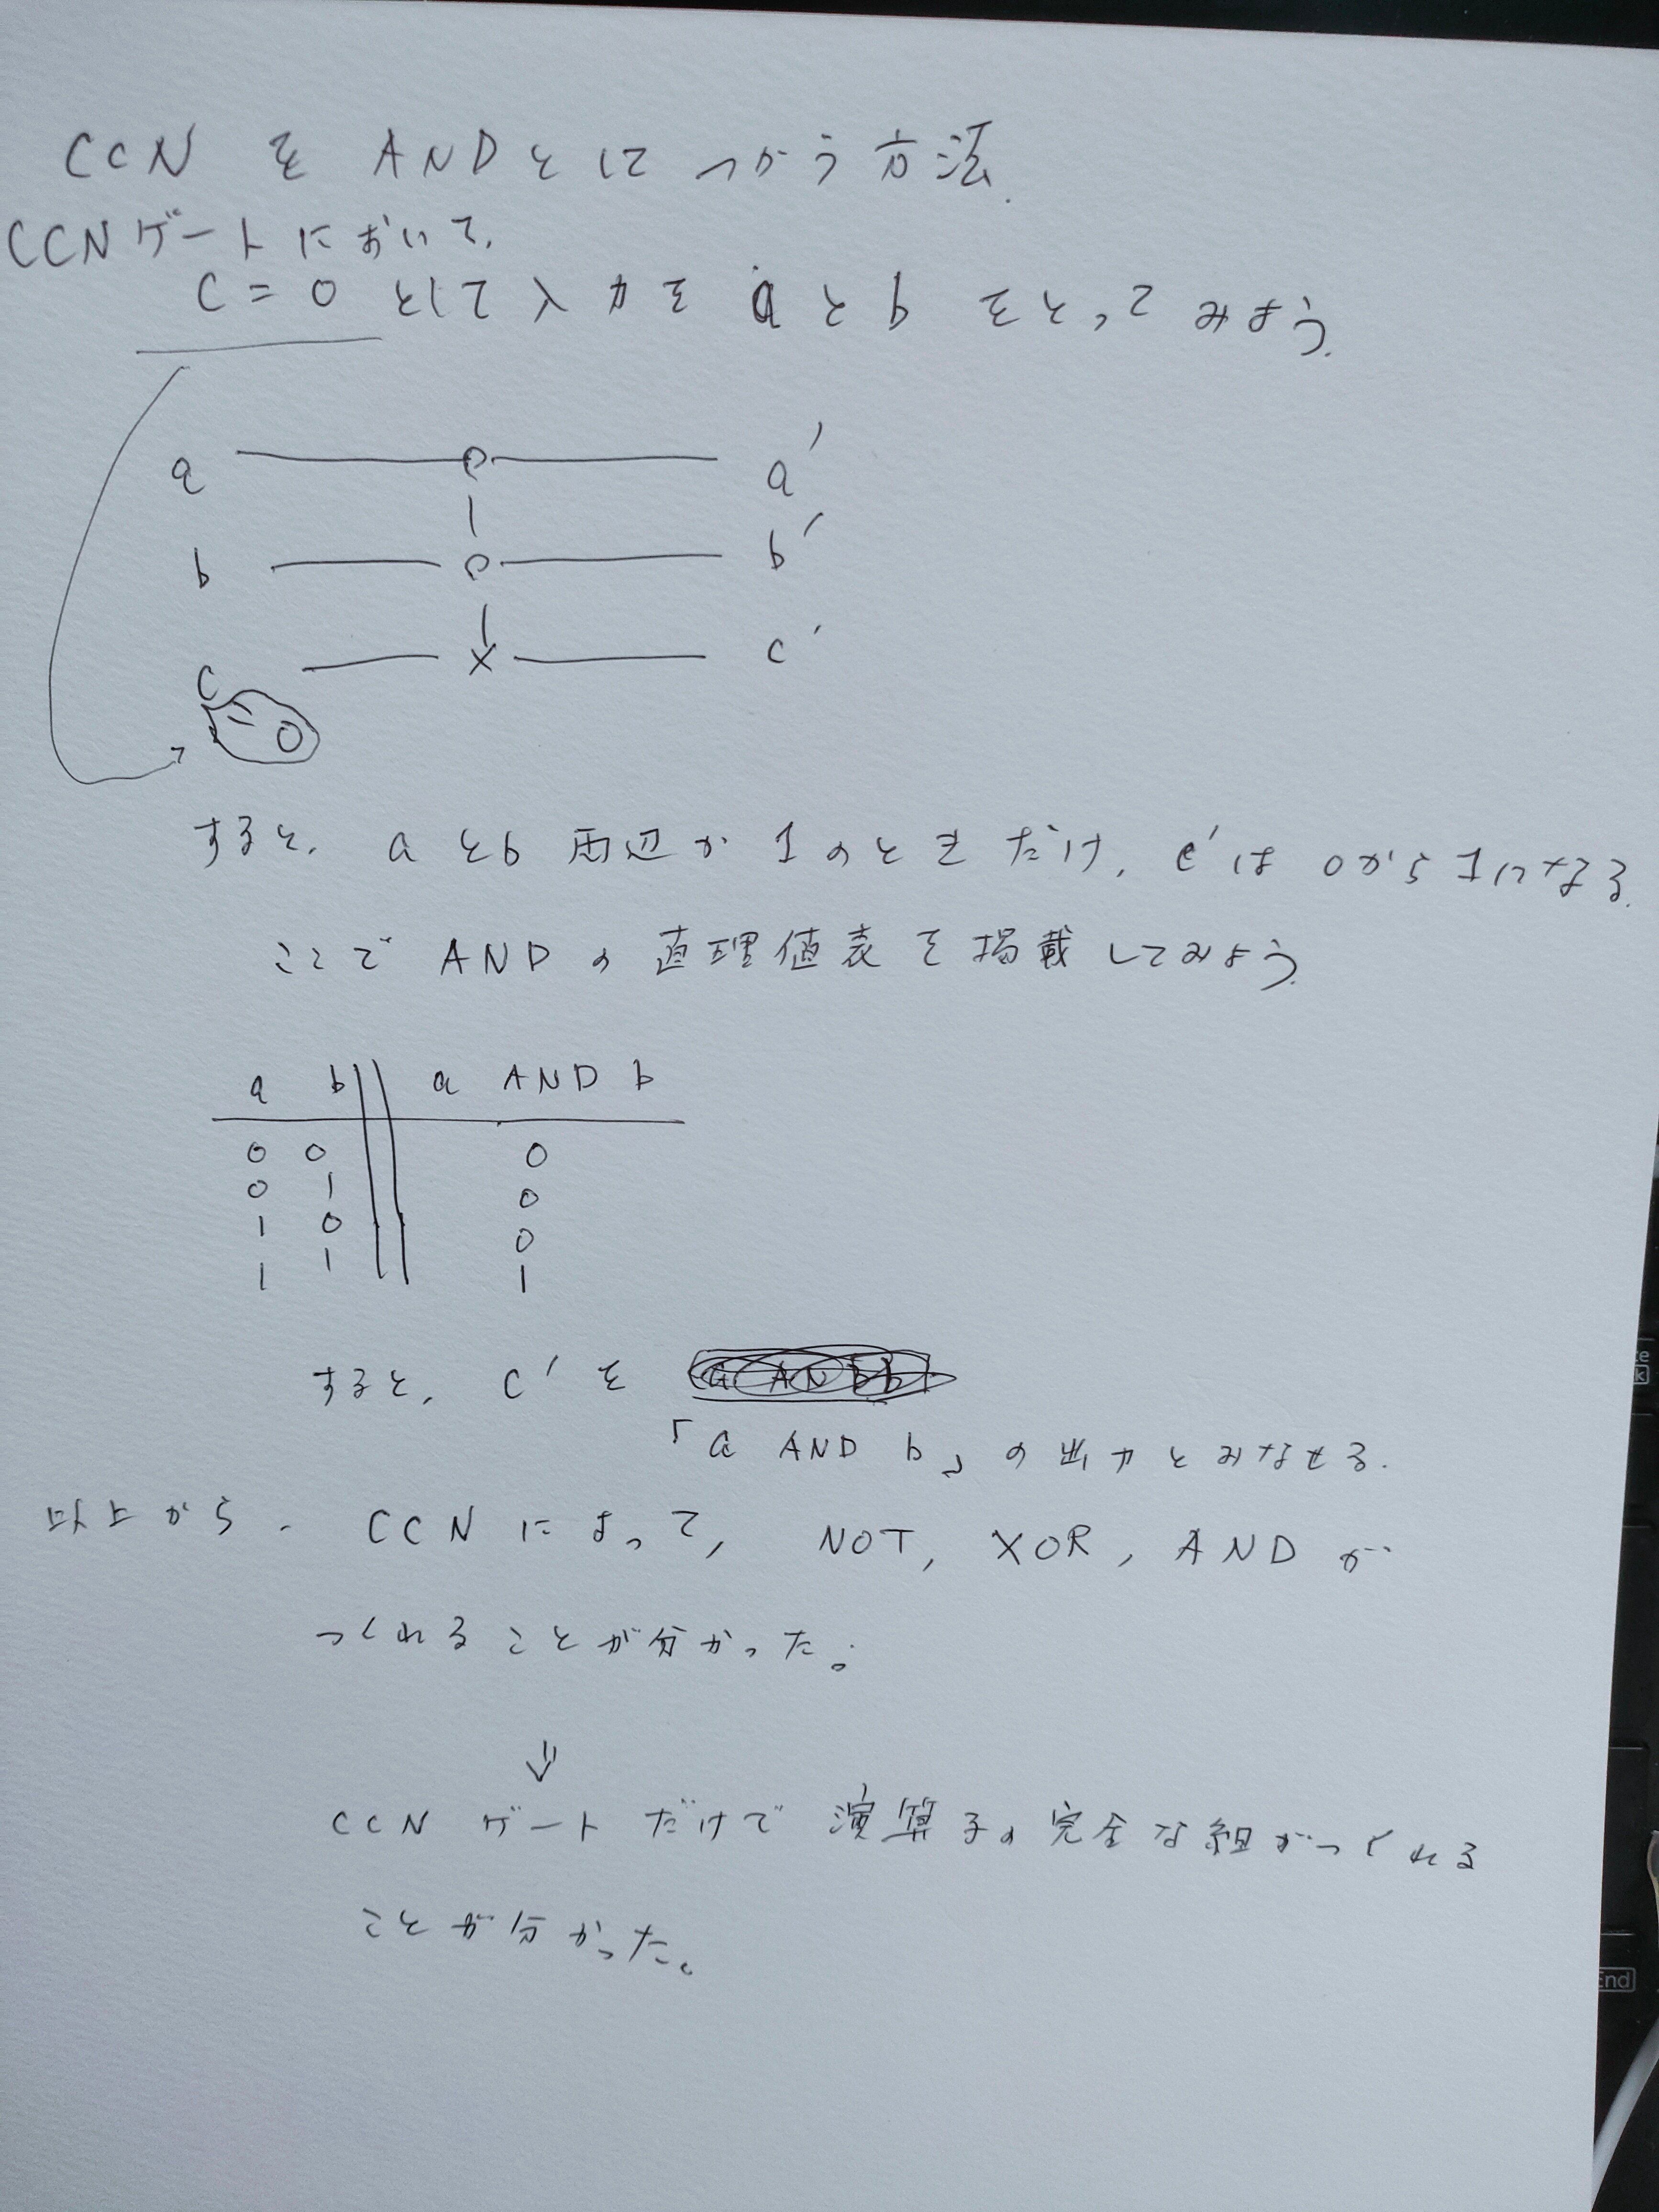 CCN を AND とに つかう方法.
CCNゲートにおいて.
C = 0 として入力を a と b をとってみよう.
a a'
b b'
c c'
= 0
すると. a とb 両辺が 1 のときだけ. c' は 0から 1になる.
ここで AND の 直理値表を掲載してみよう.
a b a AND b
0 0 0
0 1 0
1 0 0
1 1 1
すると. c' を
「a AND b」の出力とみなせる.
以上から. CCN によって, NOT, XOR, AND が
つくれることが分かった。
⇓
CCN ゲートだけで 演算子の完全な組がつくれる
ことが分かった。
te
k
End